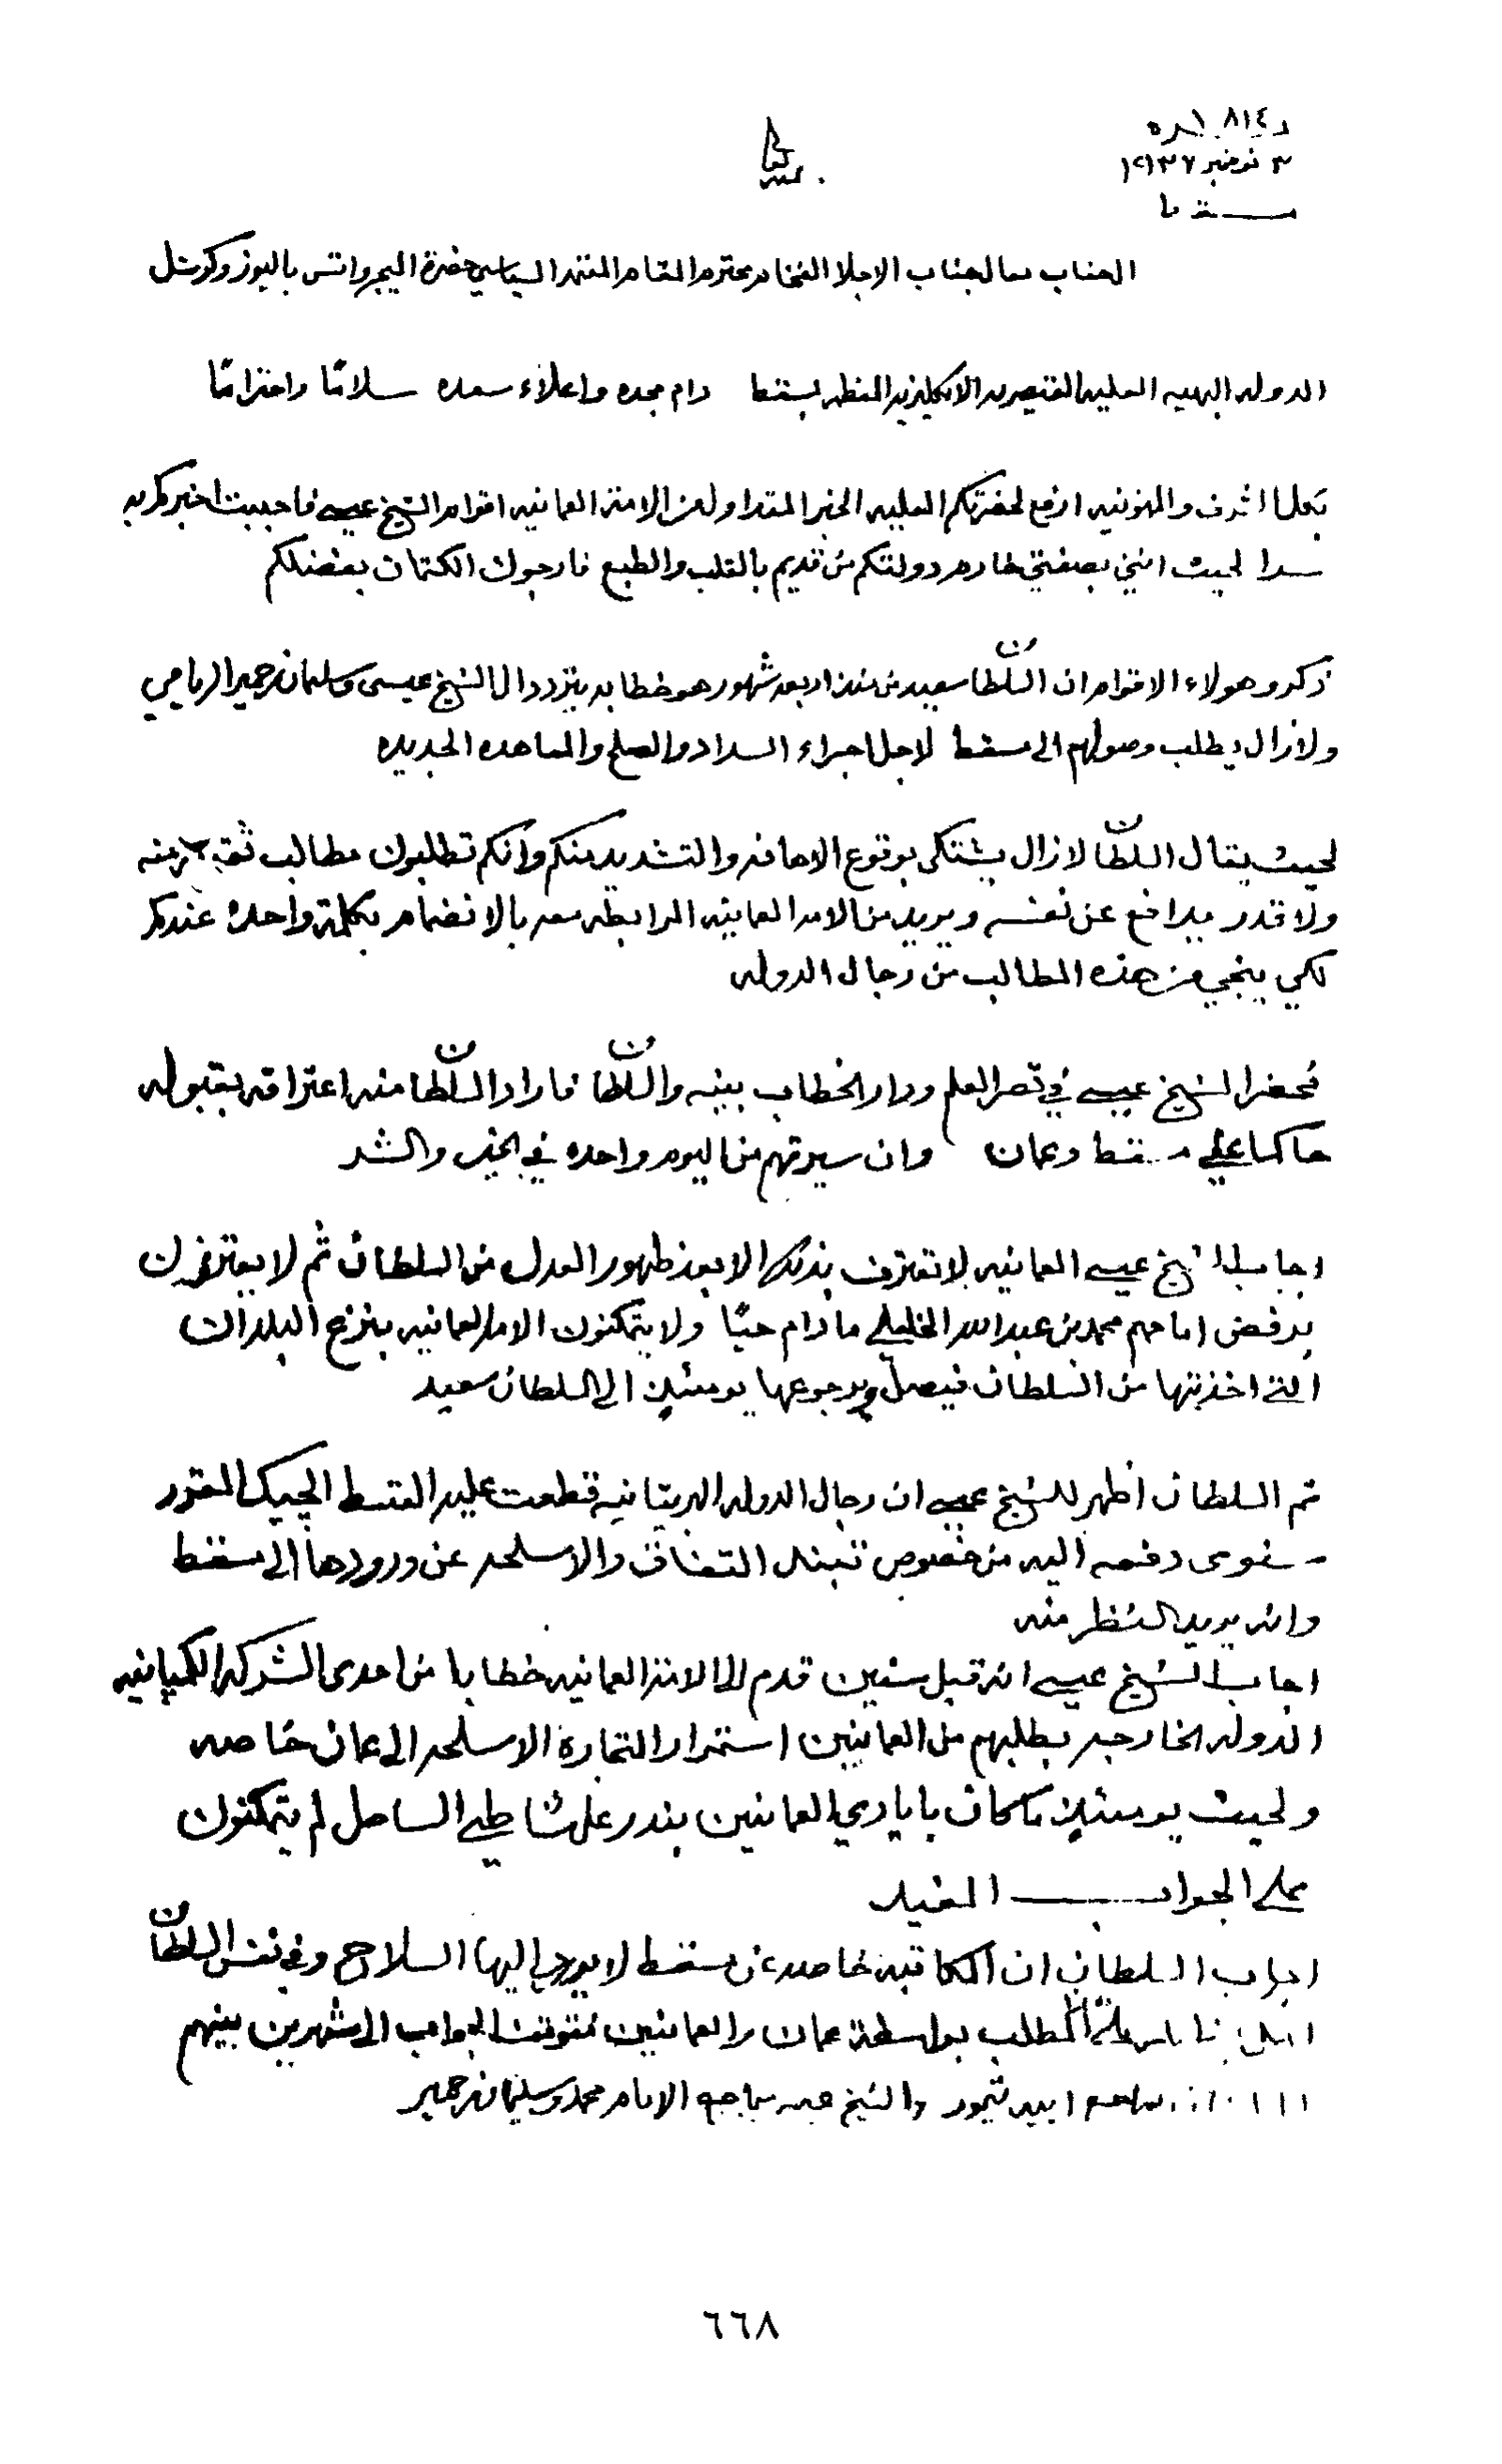 ٣ نوفمبر ١٩٣٧
الجناب معالجناب الاجل الافخام محترم المقام المعتمد السياسي حضرة الميجر واتس باليوز وكونسل
الدوله البهيه العليه القيصريه الانكليزيه المعظمه بمسقط دام مجده واعلاء سعده سلامًا واحترامًا
بكل الشرف والمنونيه ارفع لحضرتكم العليه الخبر المتداول من الامة العمانيه اقوام الشيخ عيسى فاحببت اخبركم به
سرا لحيث انني بصفتي خادم دولتكم من قديم بالقلب والطبع فارجوك الكتمان بفضلكم
ذكرو هولاء الاقوام ان السلطان سعيد من منذ اربعة شهور هو خطابه يتردد الى الشيخ عيسى وسليمان بن حمير الريامي
ولازال يطلب وصولهم الى مسقط لاجل اجراء السداد والصلح والمعاهده الجديده
لحيث يقال السلطان لازال يشتكي بوقوع الاهانه والتشديد منكم وانكم تطلبون مطالب منه
ولا قدر يدافع عن نفسه ويريد من الامه العمانيه الرابطه معه بالانضمام بكلمة واحده عندكم
لكي ينجي من هذه المطالب من رجال الدوله
فحضر الشيخ عيسى في قصر العلم ودار الخطاب بينه والسلطان فاراد السلطان منه اعترافه بقبوله
حاكما على مسقط وعمان وان سيرتهم من اليوم واحده في الخير والشر
اجاب الشيخ عيسى العمانيه لا تعترف بذلك الا بعد ظهور العدل من السلطان ثم لا يعترفون
برفض امامهم محمد بن عبدالله الخليلي مادام حيًا ولا يتمكنون الامه العمانيه بنزع البلدان
التي اخذتها من السلطان فيصل ورجوعها يومئذ الى السلطان سعيد
ثم السلطان اظهر للشيخ عيسى ان رجال الدوله البريتانيه قطعت عليه القسط الچيك المقرر
سنوى دفعه اليه من خصوص التفاق والاسلحه عن ورودها الى مسقط
وانه يريد النظر منه
اجاب الشيخ عيسى انه قبل سنين قدم الى الامة العمانيه خطابا من احدى الشركه الكمبانيه
الدوله الخارجيه بطلبهم من العمانيين استمرار التجارة الاسلحه الى عمان خاصه
ولحيث يومئذ ماكان بايادي العمانيين بندر على شاطي الساحل لم يتمكنون
على الجواب المفيد
اجاب السلطان ان المكاتبه خاصه عن مسقط لا يورد إليها السلاح وفي نفس السلطان
المطلب بواسطة عمان والعمانيين فتوقف الجواب الى شهرين بينهم
ابيه تيمور والشيخ عيسى يواجه الامام محمد وسليمان بن حمير
٦٦٨